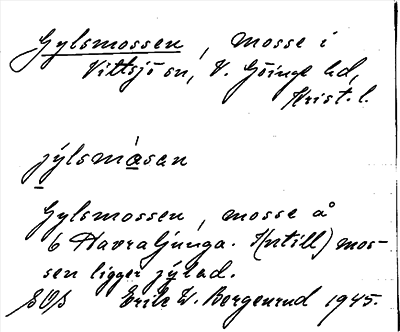 Gylsmossen, mosse i
Vittsjö sn, V. Göinge hd,
Krist. l.
jýlsmåsan
Gylsmossen, mosse å
6 Havraljunga. Intill) mos-
sen ligger jýlad.
Erik W. Bergenrud 1945.